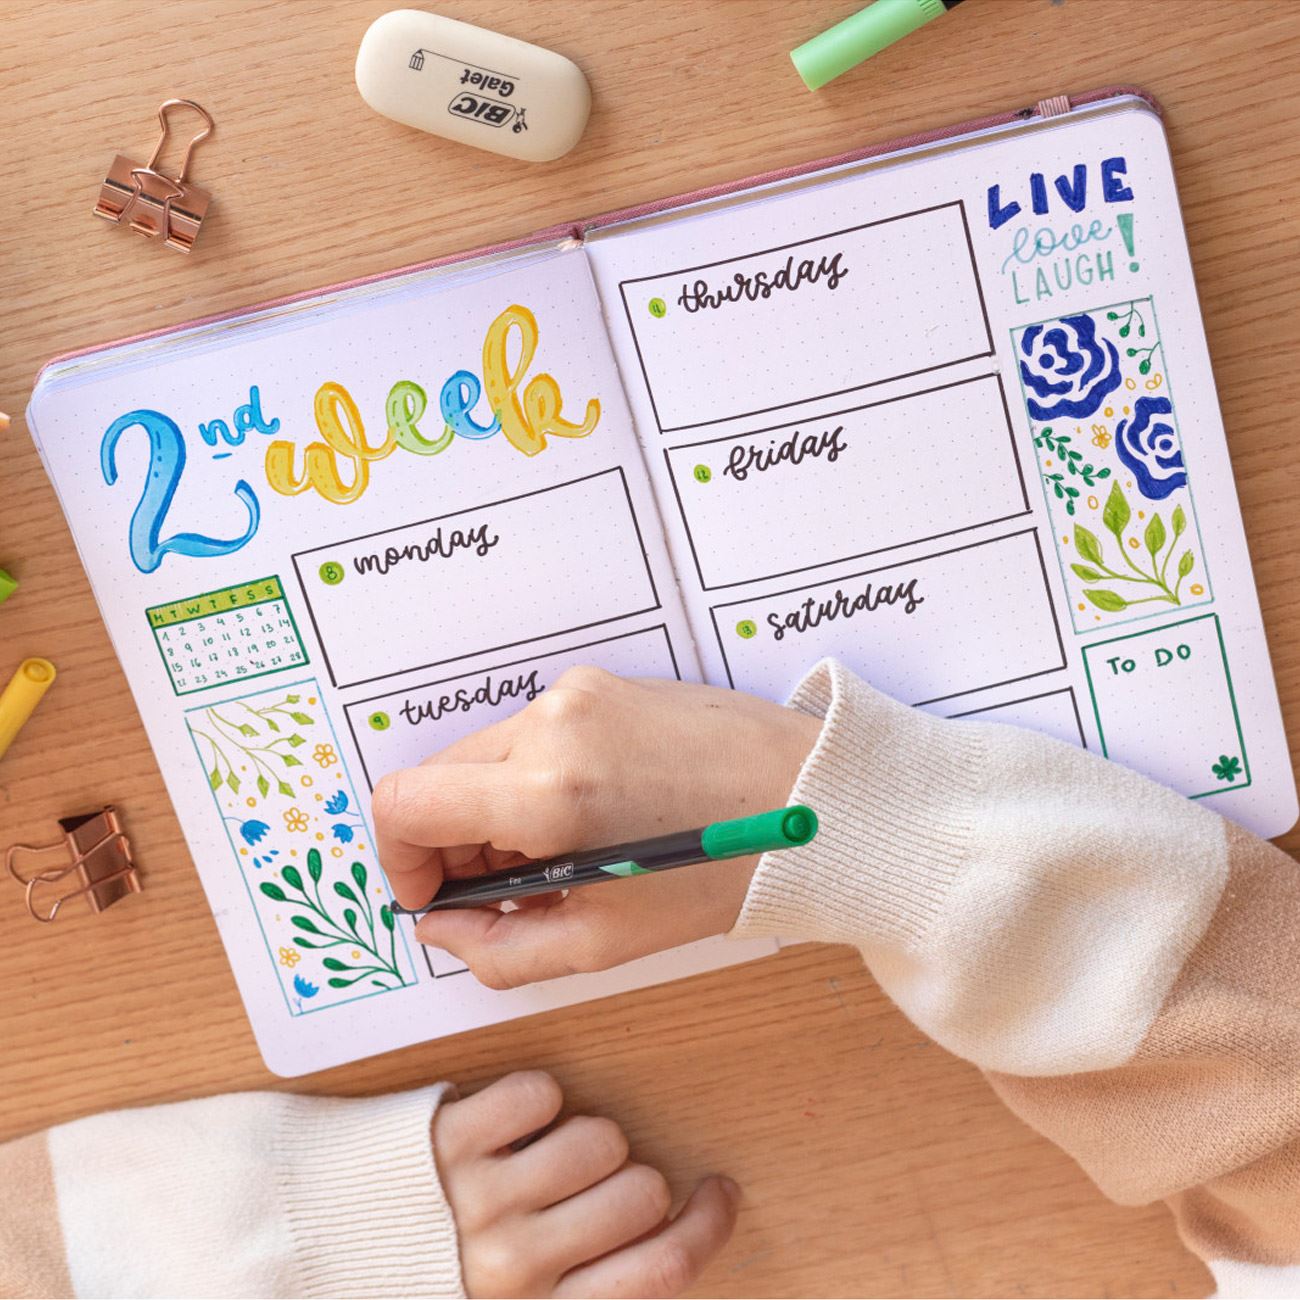 BIC
Galet
2nd week
M T W T F S S
1 2 3 4 5 6 7
8 9 10 11 12 13 14
15 16 17 18 19 20 21
22 23 24 25 26 27 28
8 monday
9 tuesday
11 thursday
12 friday
13 saturday
LIVE
love
LAUGH!
TO DO
Fine BIC